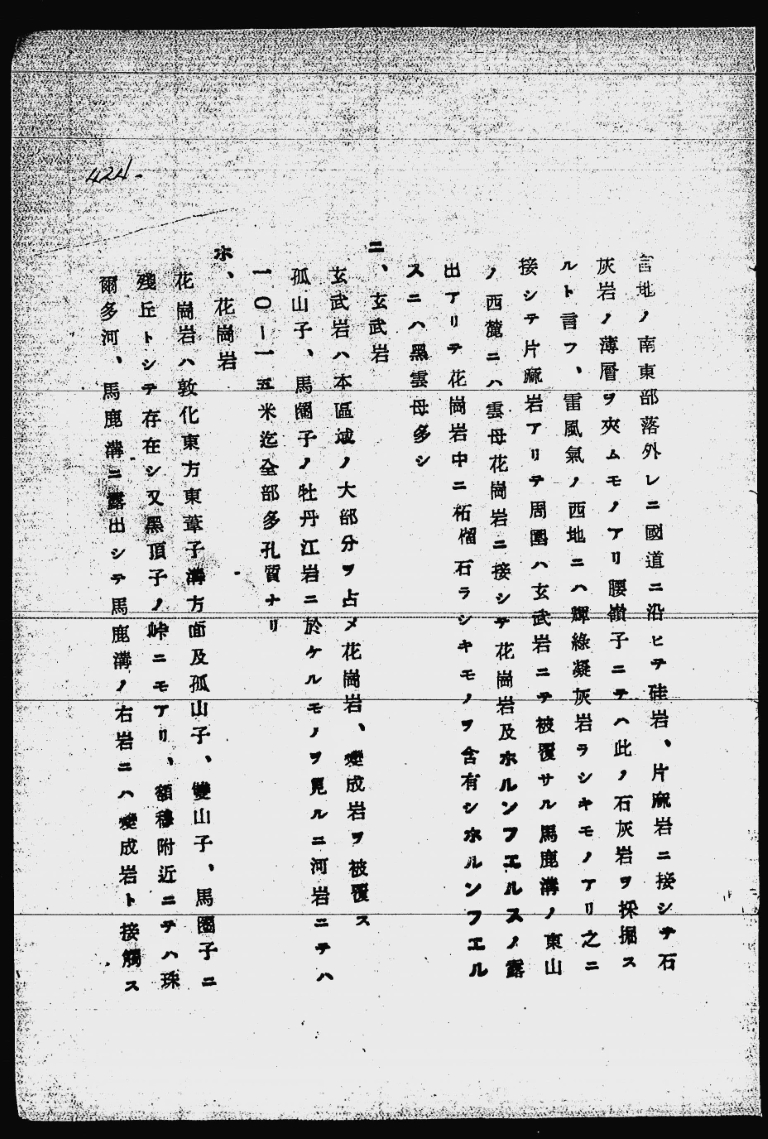 424.
言地ノ南東部落外レニ國道ニ沿ヒテ硅岩、片麻岩ニ接シテ石
灰岩ノ薄層ヲ夾ムモノアリ腰嶺子ニテハ此ノ石灰岩ヲ採掘ス
ルト言フ、雷風氣ノ西地ニハ輝綠凝灰岩ラシキモノアリ之ニ
接シテ片麻岩アリテ周圍ハ玄武岩ニテ被覆サル馬鹿溝ノ東山
ノ西麓ニハ雲母花崗岩ニ接シテ花崗岩及ホルンフエルスノ露
出アリテ花崗岩中ニ柘榴石ラシキモノヲ含有シホルンフエル
スニハ黑雲母多シ
ニ、玄武岩
玄武岩ハ本區域ノ大部分ヲ占メ花崗岩、變成岩ヲ被覆ス
孤山子、馬圈子ノ牡丹江岩ニ於ケルモノヲ見ルニ河岩ニテハ
一〇ー一五米迄全部多孔質ナリ
ホ、花崗岩
花崗岩ハ敦化東方東葦子溝方面及孤山子、雙山子、馬圈子ニ
殘丘トシテ存在シ又黑頂子ノ峠ニモアリ、額穆附近ニテハ珠
爾多河、馬鹿溝ニ露出シテ馬鹿溝ノ右岩ニハ變成岩ト接觸ス